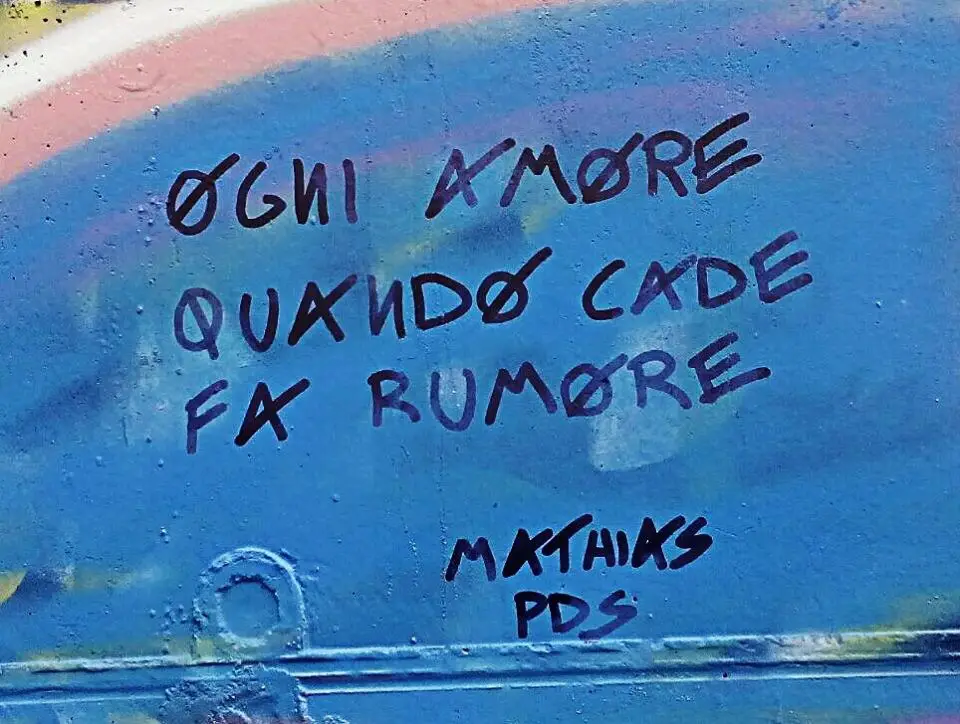 OGNI AMORE
QUANDO CADE
FA RUMORE
MATHIAS
PDS